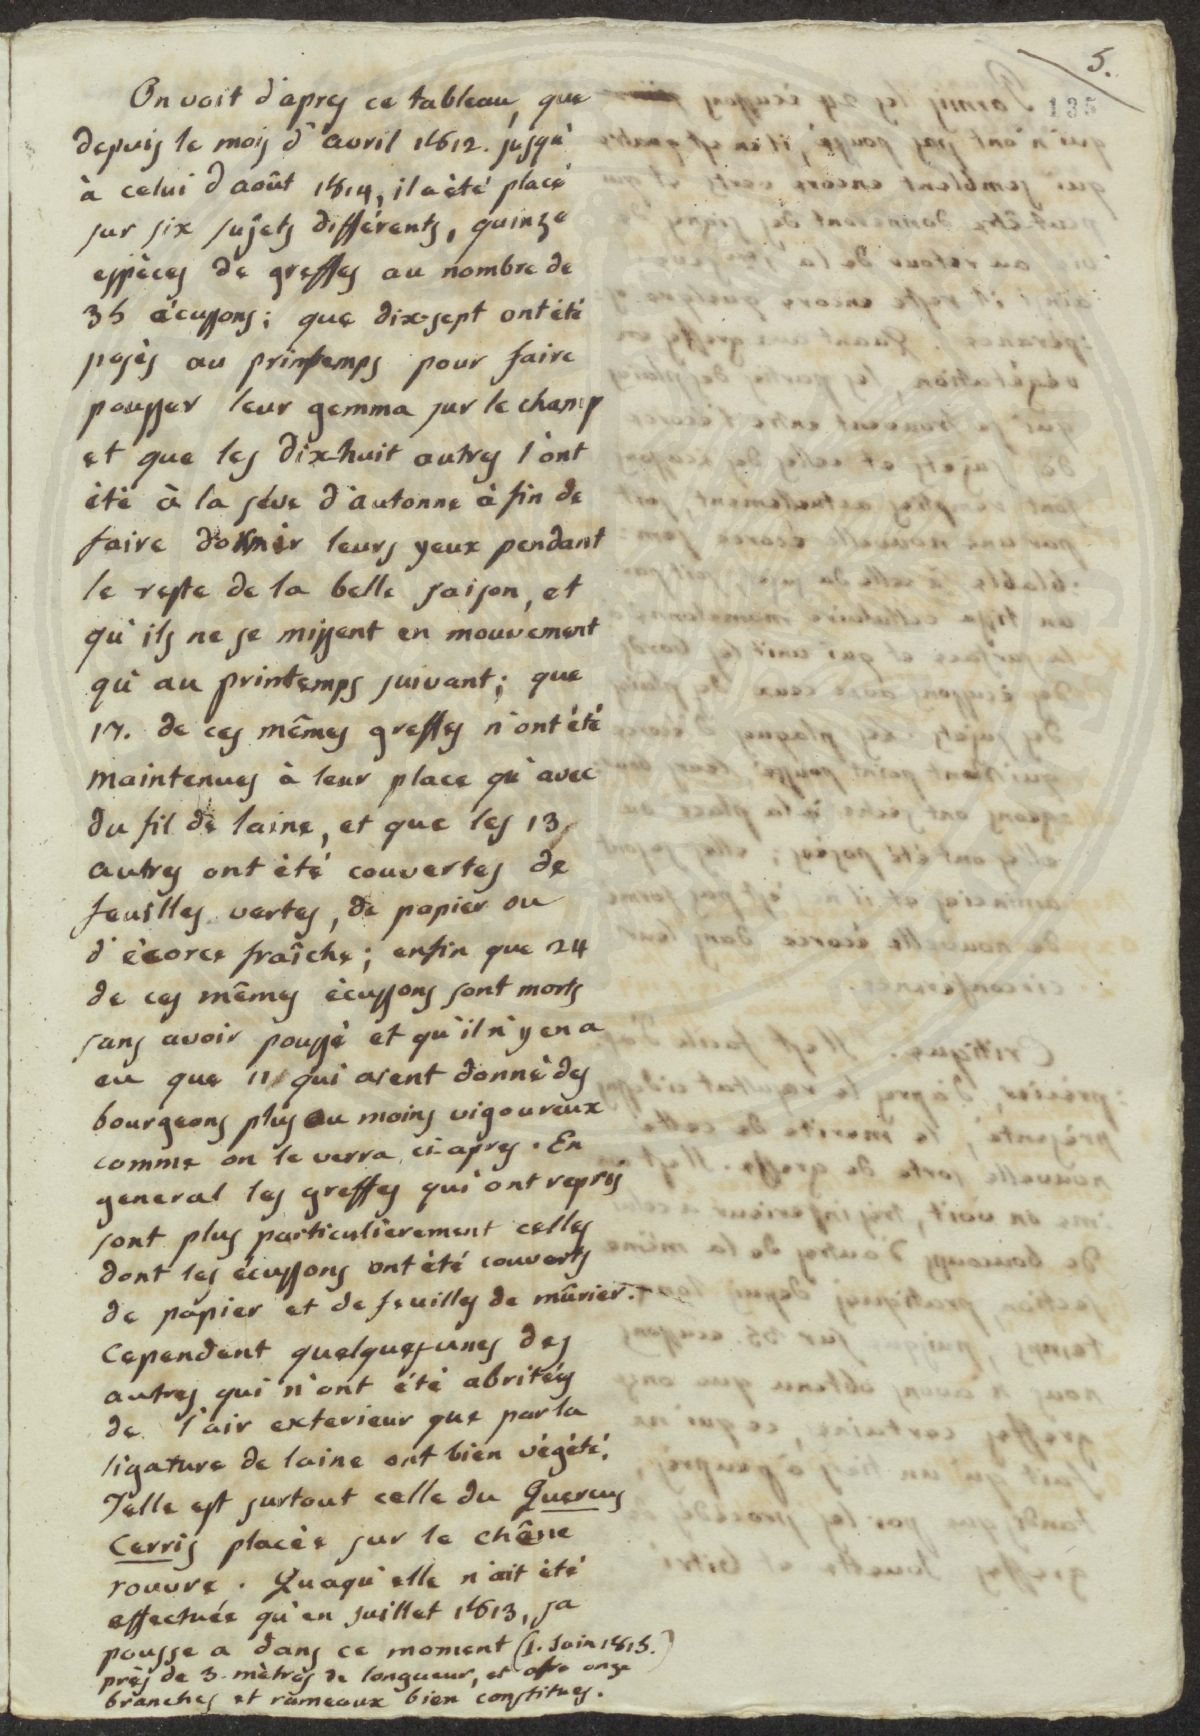 5.
135
On voit d'après ce tableau, que
depuis le mois d'avril 1812. jusqu'
à celui d'août 1814, il a été placé
sur six sujets différents, quinze
espèces de greffes au nombre de
35 écussons; que dix-sept ont été
posés au printemps pour faire
pousser leur gemma sur le champ
et que les dix-huit autres l'ont
été à la séve d'automne à fin de
faire dormir leurs yeux pendant
le reste de la belle saison, et
qu'ils ne se missent en mouvement
qu'au printemps suivant; que
17. de ces mêmes greffes n'ont été
maintenues à leur place qu'avec
du fil de laine, et que les 13
autres ont été couvertes de
feuilles vertes, de papier ou
d'écorce fraîche; enfin que 24
de ces mêmes écussons sont morts
sans avoir poussé et qu'il n'y en a
eu que 11 qui aient donné des
bourgeons plus ou moins vigoureux
comme on le verra ci-apres. En
general les greffes qui ont repris
sont plus particulièrement celles
dont les écussons ont été couverts
de papier et de feuilles de mûrier.
Cependent quelques unes des
autres qui n'ont été abritées
de l'air exterieur que par la
ligature de laine ont bien végété.
Telle est surtout celle du Quercus
Cerris placée sur le chêne
rouvre. Quaqu'elle n'ait été
effectuée qu'en juillet 1813, sa
pousse a dans ce moment (1. Juin 1815.)
près de 3. mètres de longueur, et offre onze
branches et rameaux bien constitues.